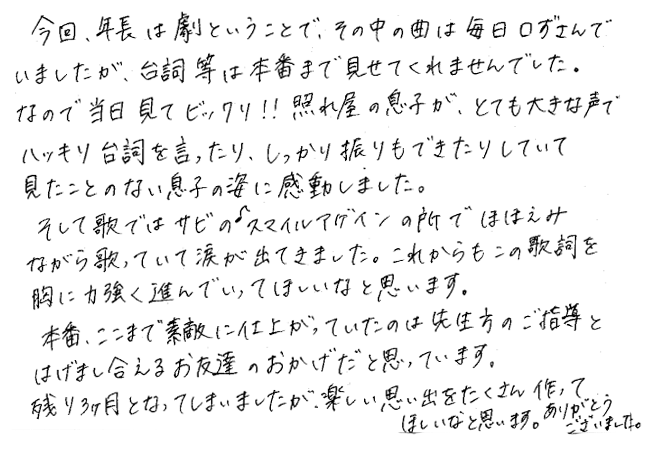 今回、年長は劇ということで、その中の曲は毎日口ずさんで
いましたが、台詞等は本番まで見せてくれませんでした。
なので当日見てビックリ!! 照れ屋の息子が、とても大きな声で
ハッキリ台詞を言ったり、しっかり振りもできたりしていて
見たことのない息子の姿に感動しました。
そして歌ではサビの♪スマイルアゲインの所でほほえみ
ながら歌っていて涙が出てきました。これからもこの歌詞を
胸に力強く進んでいってほしいなと思います。
本番、ここまで素敵に仕上がっていたのは先生方のご指導と
はげまし合えるお友達のおかげだと思っています。
残り3ヶ月となってしまいましたが、楽しい思い出をたくさん作って
ほしいなと思います。ありがとう
ございました。